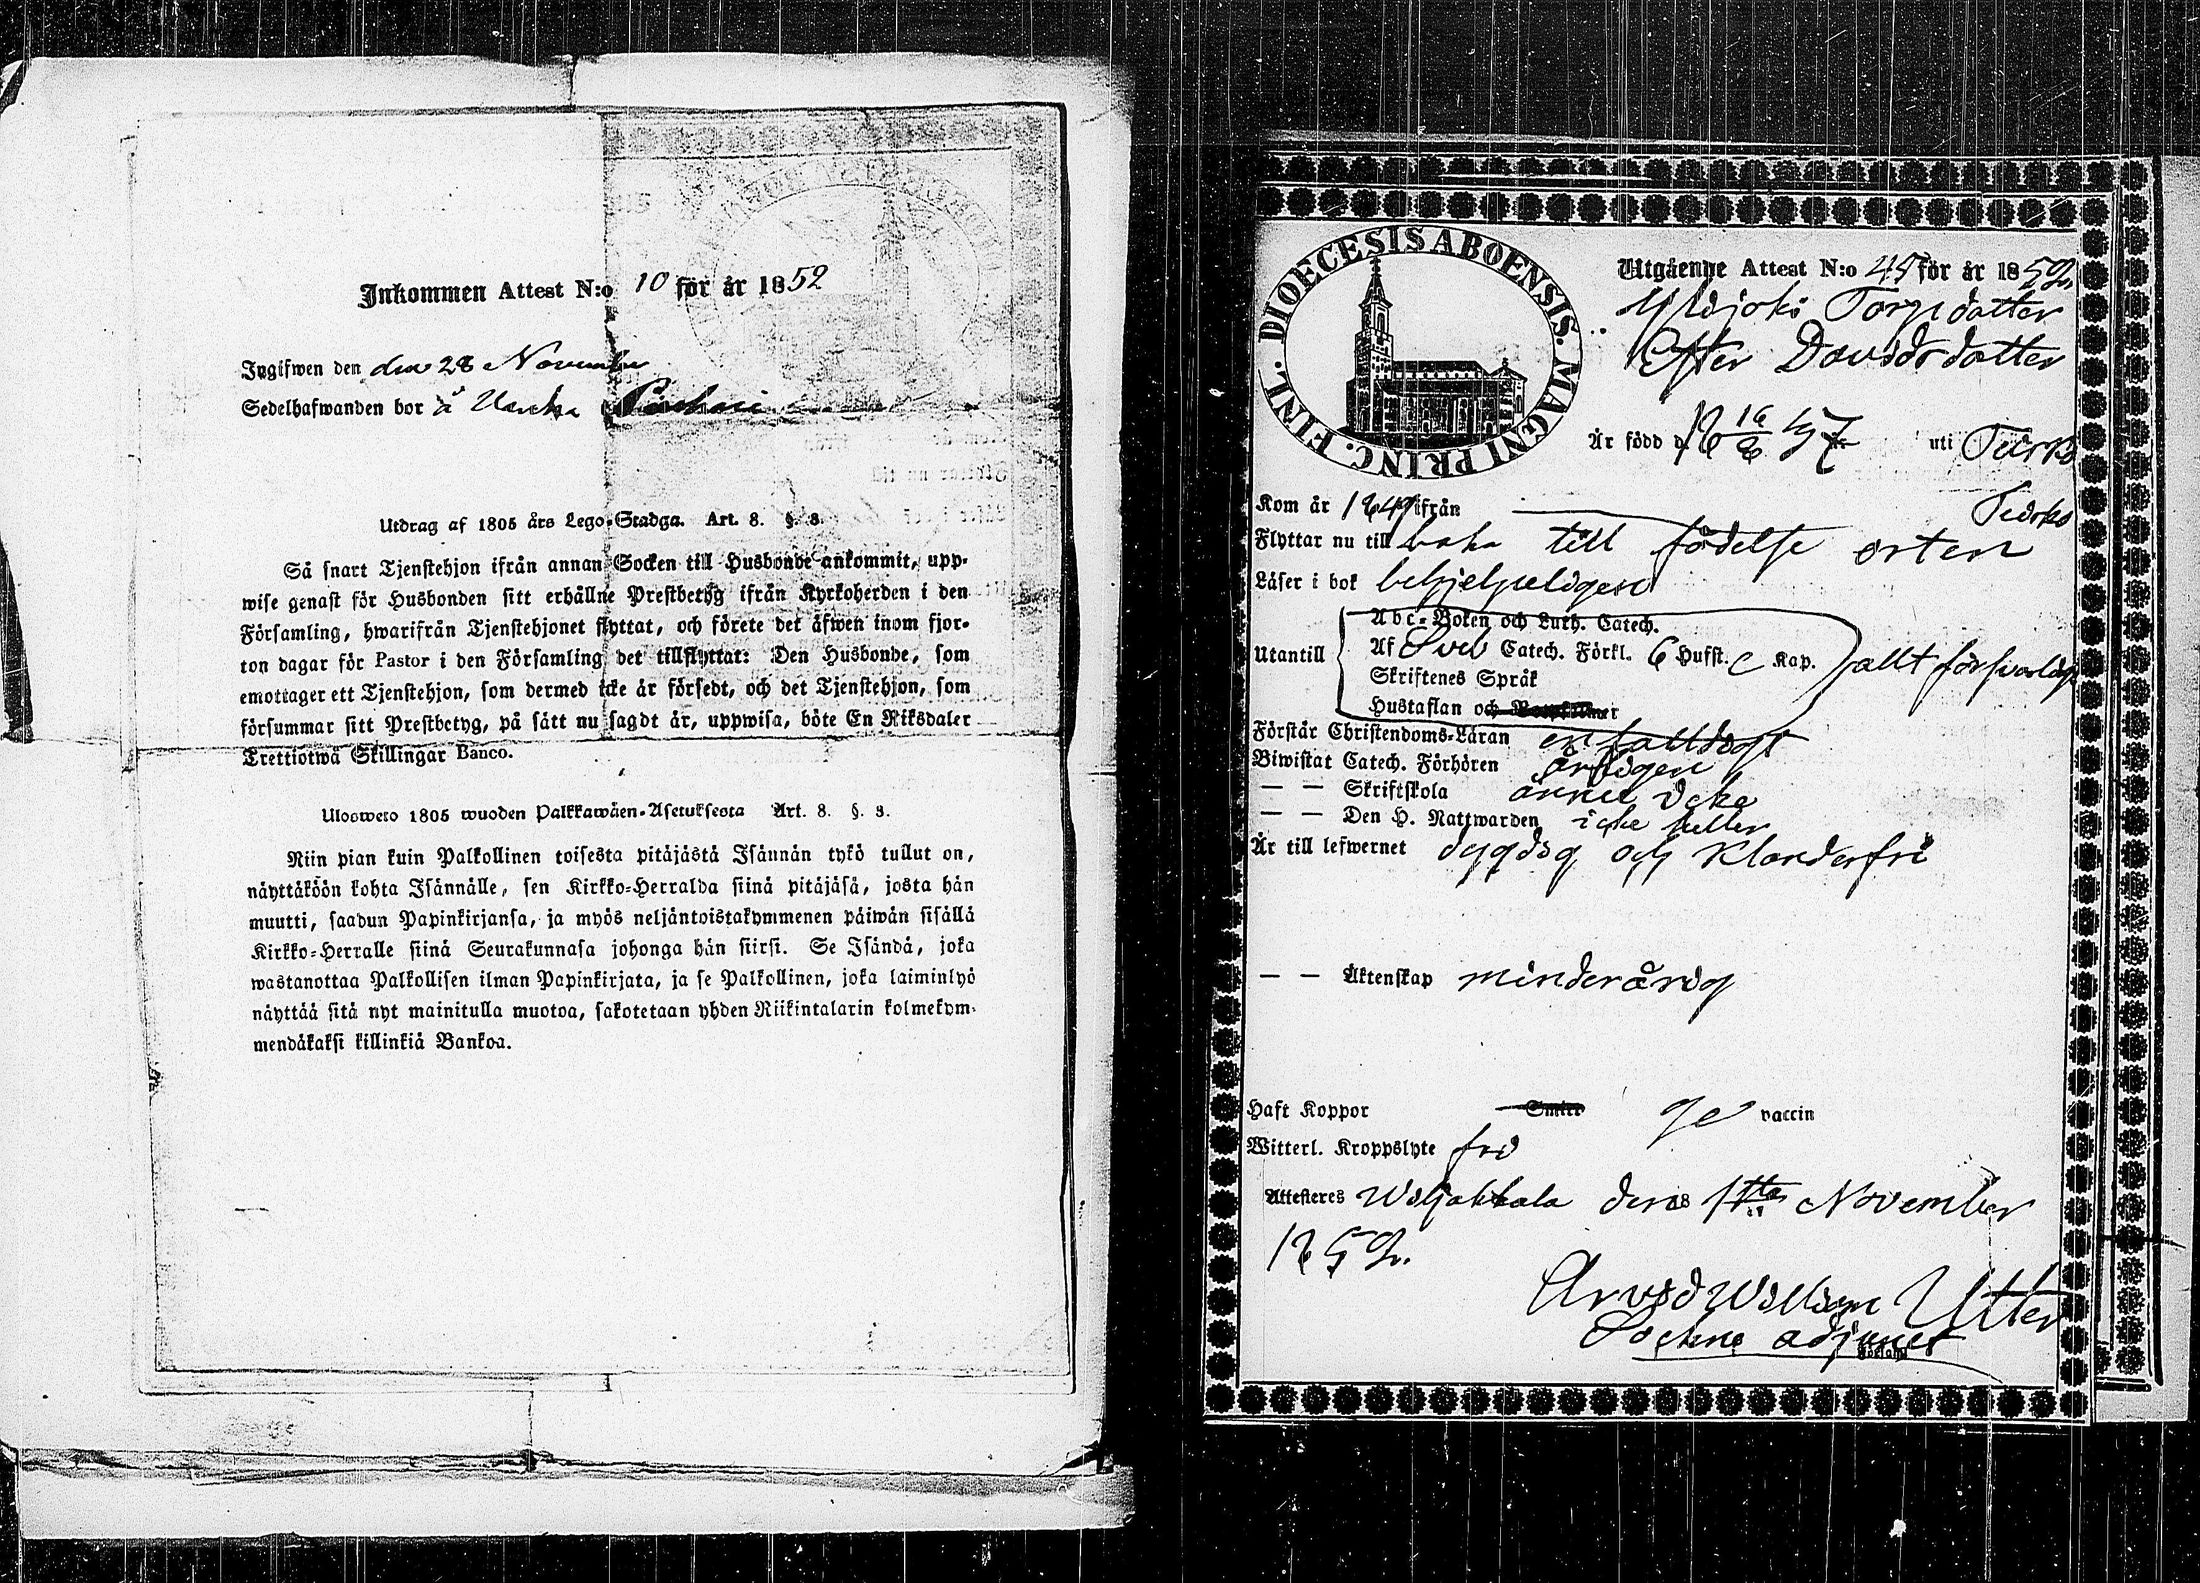 Inkommen Attest N:o 10 för år 1852
Ingifwen den den 28 November
Sedelhafwanden bor å
Utdrag af 1805 års Lego-Stadga. Art. 8. §. 8.
Så snart Tjenstehjon ifrån annan Socken till Husbonde ankommit, upp-
wise genast för Husbonden sitt erhållne Prestbetyg ifrån Kyrkoherden i den
Församling, hwarifrån Tjenstehjonet flyttat, och förete det äfwen inom fjor-
ton dagar för Pastor i den Församling det tillflyttat: Den Husbonde, som
emottager ett Tjenstehjon, som dermed icke är försedt, och det Tjenstehjon, som
försummar sitt Prestbetyg, på sätt nu sagdt är, uppwisa, böte En Riksdaler
Trettiotwå Skillingar Banco.
Uloswero 1805 wuoden Palkkawäen-Asetuksesta Art. 8. §. 8.
Niin pian kuin Palkollinen toisesta pitäjästä Isännän tykö tullut on,
näyttäköön kohta Isännälle, sen Kirkko-Herralda siinä pitäjäsä, josta hän
muutti, saadun Papinkirjansa, ja myös neljäntoistakymmenen päiwän sisällä
Kirkko-Herralle siinä Seurakunnasa johonga hän siirsi. Se Isändä, joka
wastanottaa Palkollisen ilman Papinkirjata, ja se Palkollinen, joka laiminlyö
näyttää sitä nyt mainitulla muotoa, sakotetaan yhden Riikintalarin kolmekym-
mendäkaksi killinkiä Bankoa.
DIOECESIS ABOENSIS. MAGNI PRINC. FINL.
Utgående Attest N:o 45 för år 1852.
Torpdotter
Ester Davidsdotter
Är född d. 18 16/8 37 uti
Kom år 1849 ifrån
Flyttar nu till baka till födelse orten
Läser i bok behjelpeligen
Abc-Boken och Luth. Catech.
Utantill Af Sveb Catech. Förkl. 6 Hufst. Kap. allt försvarligt
Skriftenes Språk
Hustaflan och
Förstår Christendoms-Läran enfaldigt
Biwistat Catech. Förhören årligen
— — Skriftskola ännu icke
— — Den H. Nattwarden icke heller
Är till lefwernet dygdig och klanderfri
— — Äktenskap minderårig
Haft Koppor vaccin
Witterl. Kroppslyte fri
Attesteres Wiljakkala den 1sta November
1852.
Arvid William Utter
Sockne adjunct